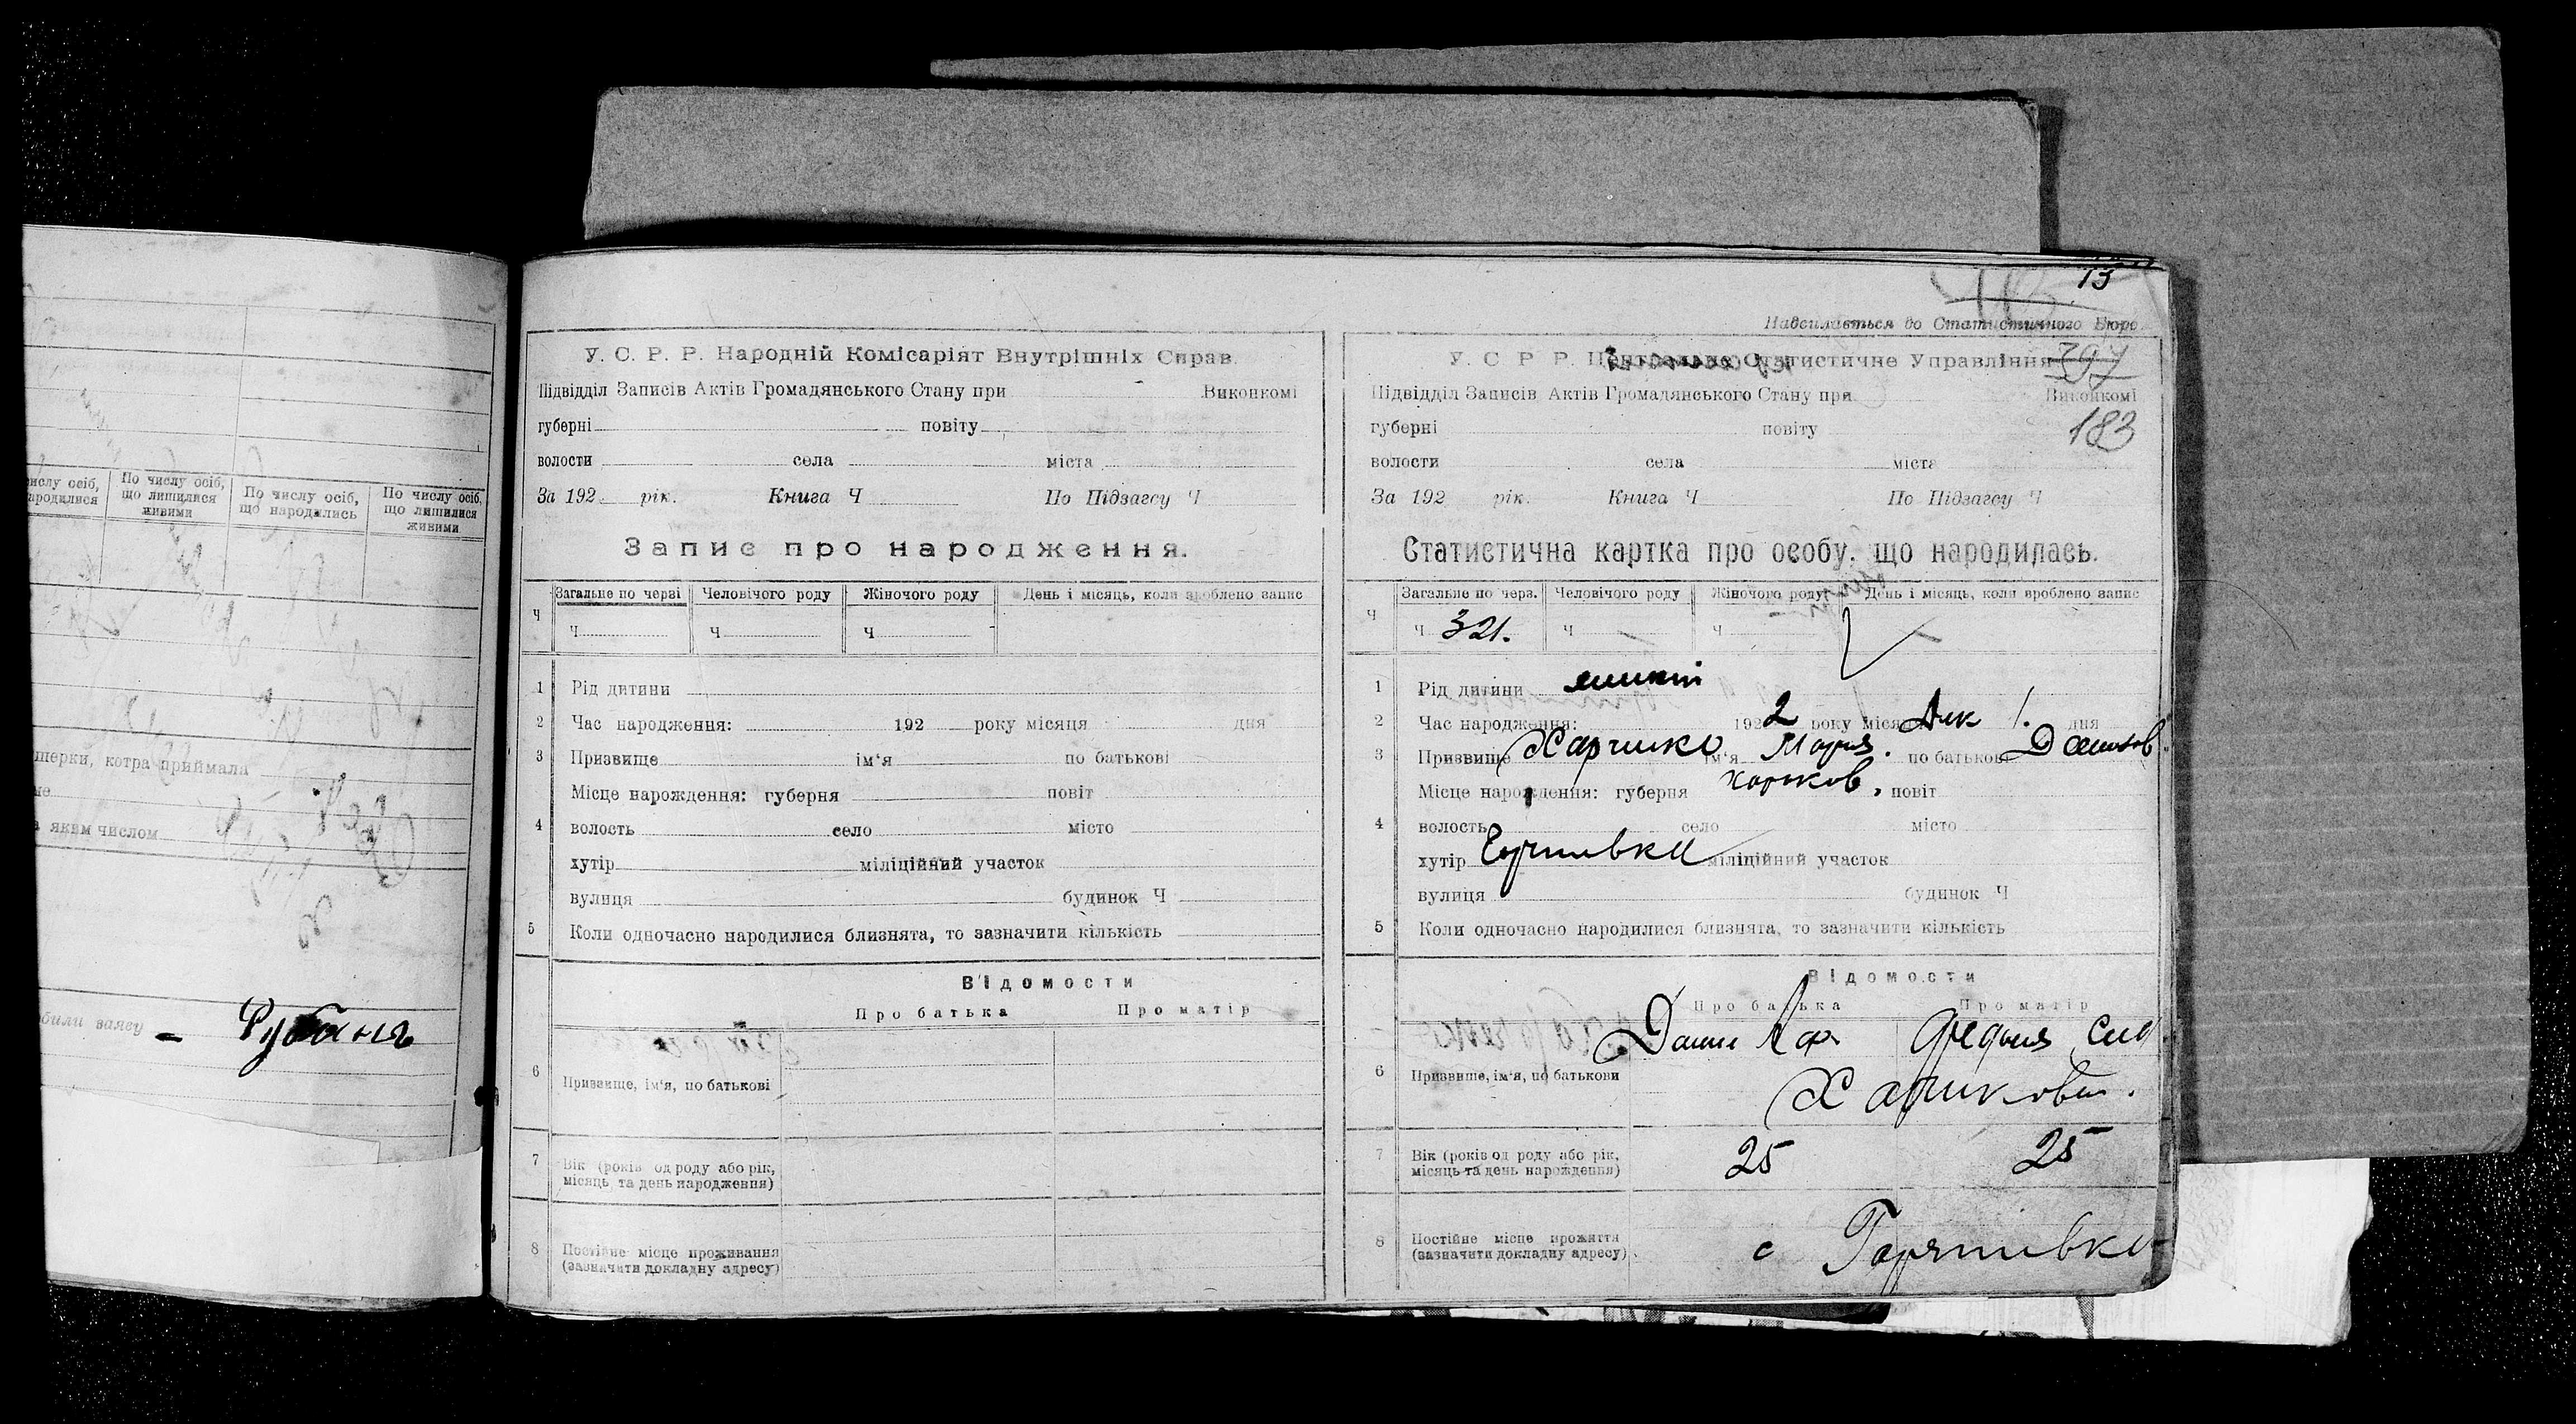 ислу осіб, По числу осіб, По числу осіб, По числу осіб,
ародилися що лишилися що народились що лишилися
живими живими
шерки, котра приймала
ме
а яким числом
били заяву - Рубань
У. С. Р. Р. Народній Комісаріят Внутрішніх Справ.
Підвідділ Записів Актів Громадянського Стану при Виконкомі
губерні повіту
волости села міста
За 192 рік. Книга Ч По Підзагсу Ч
Запис про народження.
Загальне по черзі Человічого роду Жіночого роду День і місяць, коли зроблено запис
Ч Ч Ч Ч
1 Рід дитини
2 Час народження: 192 року місяця дня
3 Призвище ім'я по батькові
Місце нарождення: губерня повіт
4 волость село місто
хутір міліційний участок
вулиця будинок Ч
5 Коли одночасно народилися близнята, то зазначити кількість
Відомости
Про батька Про матір
6 Призвище, ім'я, по батькові
7 Вік (років од роду або рік,
місяць та день народження)
8 Постійне місце проживання
(зазначити докладну адресу)
15
Надсилається до Статистичного Бюро.
У. С. Р. Р. Центральне Статистичне Управління 397
Підвідділ Записів Актів Громадянського Стану при Виконкомі
губерні повіту 183
волости села міста
За 192 рік. Книга Ч По Підзагсу Ч
Статистична картка про особу, що народилась.
Загальне по черз. Человічого роду Жіночого роду День і місяць, коли зроблено запис
Ч Ч 321. Ч Ч
1 Рід дитини
2 Час народження: 1922 року міся Дек 1. дня
3 Призвище Харченко ім'я Мария. по батькові Данилов
Місце нарождення: губерня Харьков, повіт
4 волость село місто
хутір міліційний участок
вулиця будинок Ч
5 Коли одночасно народилися близнята, то зазначити кількість
Відомости
Про батька Про матір
6 Призвище, ім'я, по батькови
7 Вік (років од роду або рік, 25 25
місяць та день нарождення)
8 Постійне місце прожиття
(зазначити докладну адресу) с